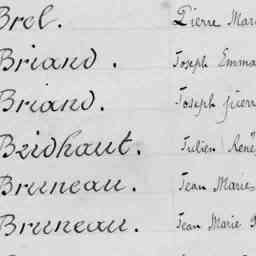 Brel. Pierre Mari
Briand. Joseph Emma
Briand. Joseph pierr
Bridhaut. Julien René
Bruneau. Jean Marie
Bruneau. Jean Marie